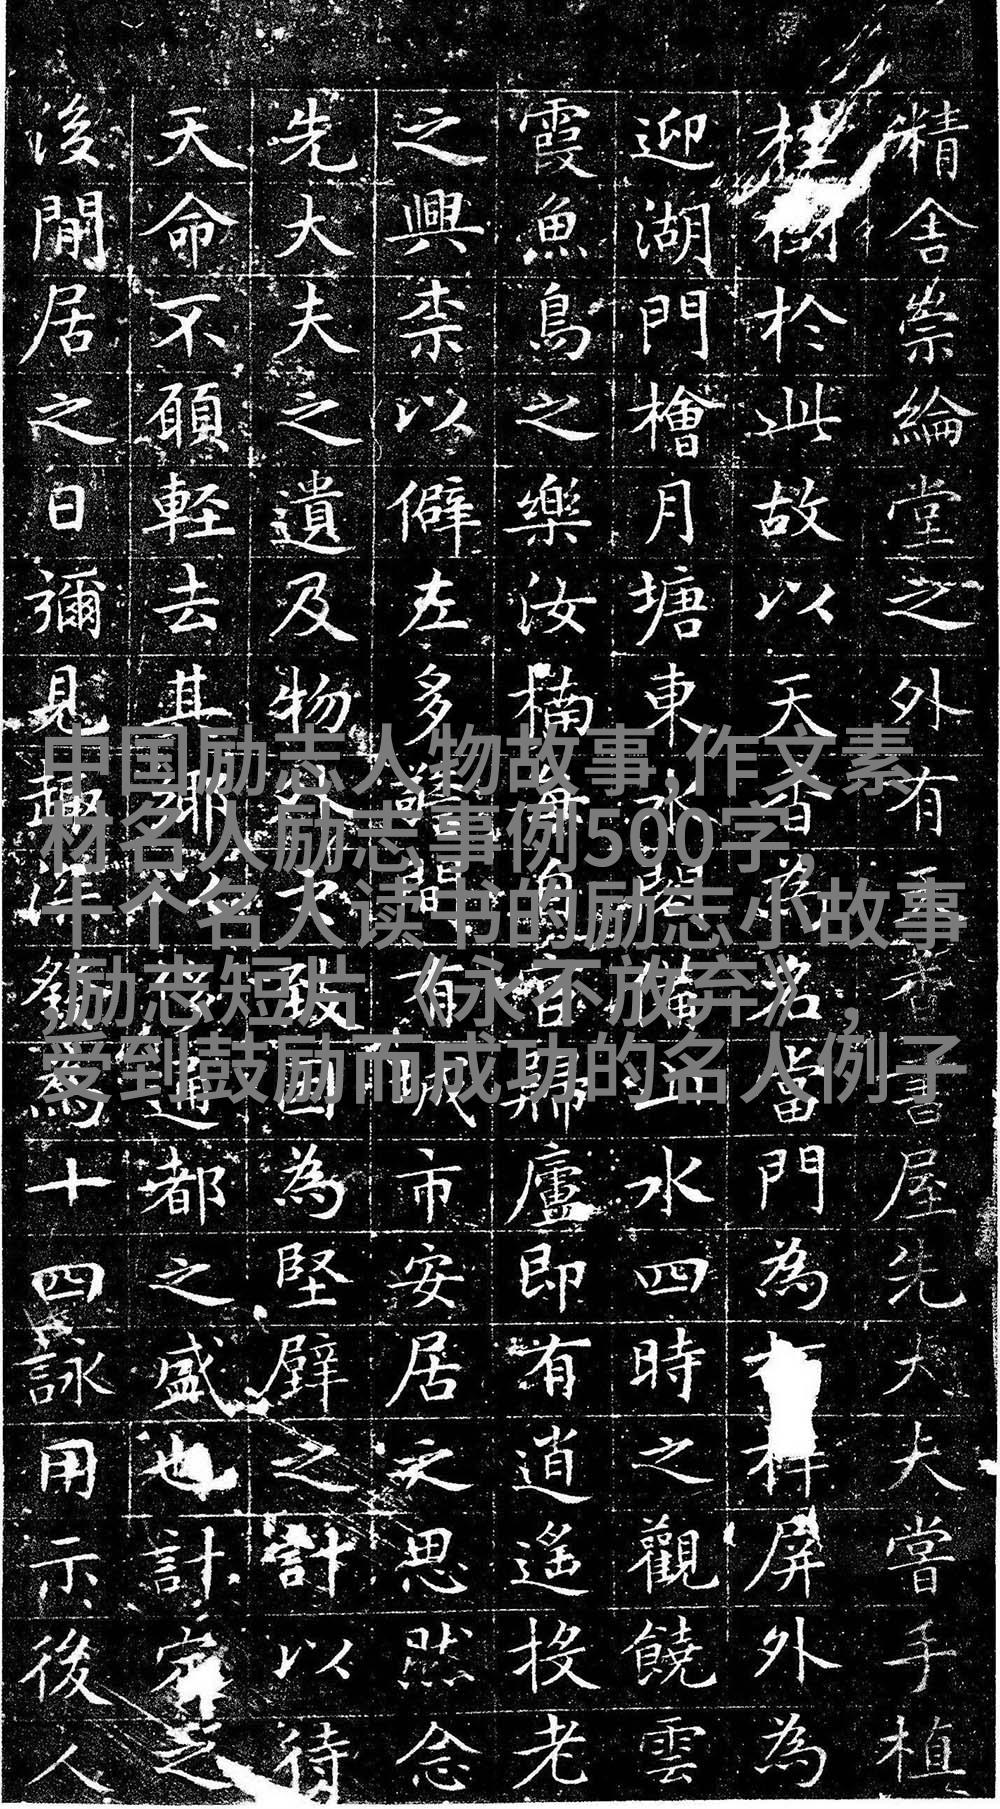 精舍崇綸堂之外有天香書屋先大夫嘗手植
桂樹於此故以天香為名當門為屏外為
迎湖門檜月塘東水閣水四時之觀饒雲
霞魚鳥之樂汝楠每自官歸廬即有逍遙投老
之興柰以僻左多間有市安居之思然念
先大夫之遺及物外致因為堅壁之計以待
天命不願輕去其鄉通都之盛也計定之
後閒居之日彌見趣為十四詠用示後人
中国励志人物故事,作文素
材名人励志事例500字,
十个名人读书的励志小故事
,励志短片《永不放弃》,
受到鼓励而成功的名人例子